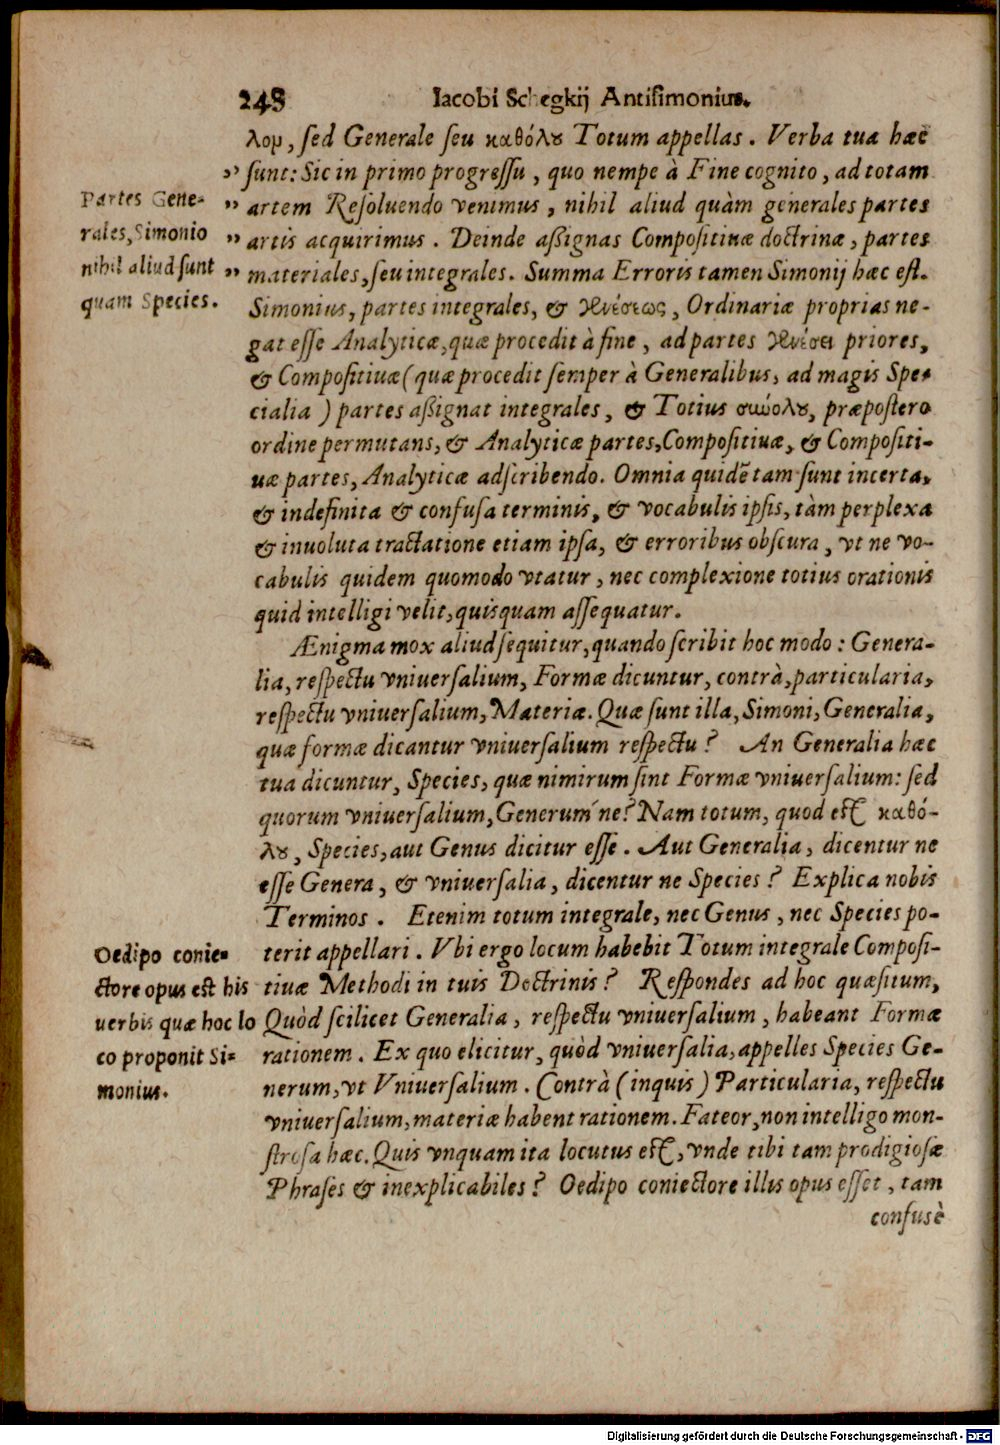 248 Iacobi Schegkij Antisimonius.
λου, sed Generale seu καθόλου Totum appellas. Verba tua hæc
” sunt: Sic in primo progressu, quo nempe à Fine cognito, ad totam
” artem Resoluendo venimus, nihil aliud quàm generales partes
” artis acquirimus. Deinde aßignas Compositiuæ doctrinæ, partes
” materiales, seu integrales. Summa Erroris tamen Simonij hæc est.
Partes Gene-
rales, Simonio
nihil aliud sunt
quam Species.
Simonius, partes integrales, & γενέσεως, Ordinariæ proprias ne-
gat esse Analyticæ, quæ procedit à fine, ad partes γενέσει priores,
& Compositiuæ (quæ procedit semper à Generalibus, ad magis Spe-
cialia) partes aßignat integrales, & Totius συνόλου, præpostero
ordine permutans, & Analyticæ partes, Compositiuæ, & Compositi-
uæ partes, Analyticæ adscribendo. Omnia quidē tam sunt incerta,
& indefinita & confusa terminis, & vocabulis ipsis, tàm perplexa
& inuoluta tractatione etiam ipsa, & erroribus obscura, vt ne vo-
cabulis quidem quomodo vtatur, nec complexione totius orationis
quid intelligi velit, quisquam assequatur.
Ænigma mox aliud sequitur, quando scribit hoc modo: Genera-
lia, respectu vniuersalium, Formæ dicuntur, contrà, particularia,
respectu vniuersalium, Materiæ. Quæ sunt illa, Simoni, Generalia,
quæ formæ dicantur vniuersalium respectu? An Generalia hæc
tua dicuntur, Species, quæ nimirum sint Formæ vniuersalium: sed
quorum vniuersalium, Generum´ne? Nam totum, quod est καθό-
λου, Species, aut Genus dicitur esse. Aut Generalia, dicentur ne
esse Genera, & vniuersalia, dicentur ne Species? Explica nobis
Terminos. Etenim totum integrale, nec Genus, nec Species po-
terit appellari. Vbi ergo locum habebit Totum integrale Composi-
tiuæ Methodi in tuis Doctrinis? Respondes ad hoc quæsitum,
Quòd scilicet Generalia, respectu vniuersalium, habeant Formæ
rationem. Ex quo elicitur, quòd vniuersalia, appelles Species Ge-
nerum, vt Vniuersalium. Contrà (inquis) Particularia, respectu
vniuersalium, materiæ habent rationem. Fateor, non intelligo mon-
strosa hæc. Quis vnquam ita locutus est, vnde tibi tam prodigiosæ
Phrases & inexplicabiles? Oedipo coniectore illis opus esset, tam
Oedipo conie-
ctore opus est his
verbis quæ hoc lo
co proponit Si-
monius.
confusè
Digitalisierung gefördert durch die Deutsche Forschungsgemeinschaft - DFG